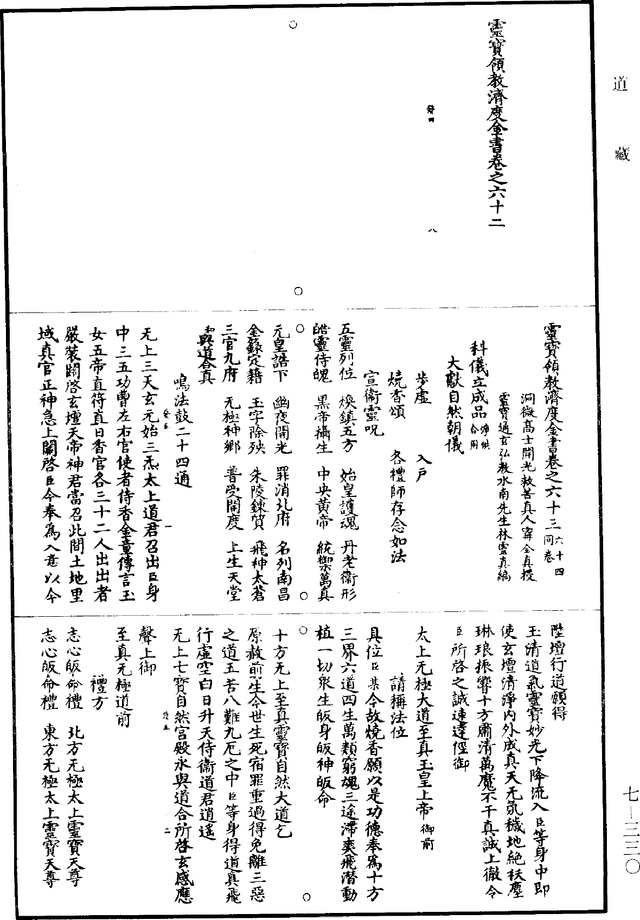 道藏
靈寶領教濟度金書卷之六十二
八
靈寶領教濟度金書卷之六十三 六十四同卷
洞微高士開光救苦真人甯全真授
靈寶通玄弘教水南先生林靈真編
科儀立成品
大獻自然朝儀
步虛 入戶
燒香頌 各禮師存念如法
宣衛靈呪
五靈列位 煥鎮五方 始皇護魂 丹老衛形
皓靈侍魄 黑帝攝生 中央黃帝 統禦萬真
元皇誥下 幽夜開光 罪消北府 名列南昌
金籙定籍 玉字除殃 朱陵鍊質 飛神太蒼
三官九府 无極神鄉 普受開度 上生天堂
與道合真
鳴法鼓二十四通
无上三天玄元始三炁太上道君召出臣身
中三五功曹左右官使者侍香金童傳言玉
女五帝直符直日香官各三十二人出出者
嚴裝關啓玄壇天帝神君當召此間土地里
域真官正神急上關啓臣今奉為入意以今
一
陞壇行道願得
玉清道氣靈寶妙光下降流入臣等身中即
使玄壇清淨內外成真天无氛穢地絕袄塵
琳琅振響十方肅清萬魔不干真誠上徹令
臣所啓之誠速達徑御
太上无極大道至真玉皇上帝御前
請稱法位
具位臣某今故燒香願以是功德奉為十方
三界六道四生萬類窮魂三途滯爽飛潛動
植一切眾生皈身皈神皈命
十方无上至真靈寶自然大道乞
原赦前生今世生死宿罪重過得免離三惡
之道五苦八難九厄之中臣等身得道真飛
行虛空白日升天侍衛道君逍遙
无上七寶自然宮殿永與道合所啓玄感應
二
聲上御
至真无極道前
禮方
志心皈命禮 北方无極太上靈寶天尊
志心皈命禮 東方无極太上靈寶天尊
七—三三〇